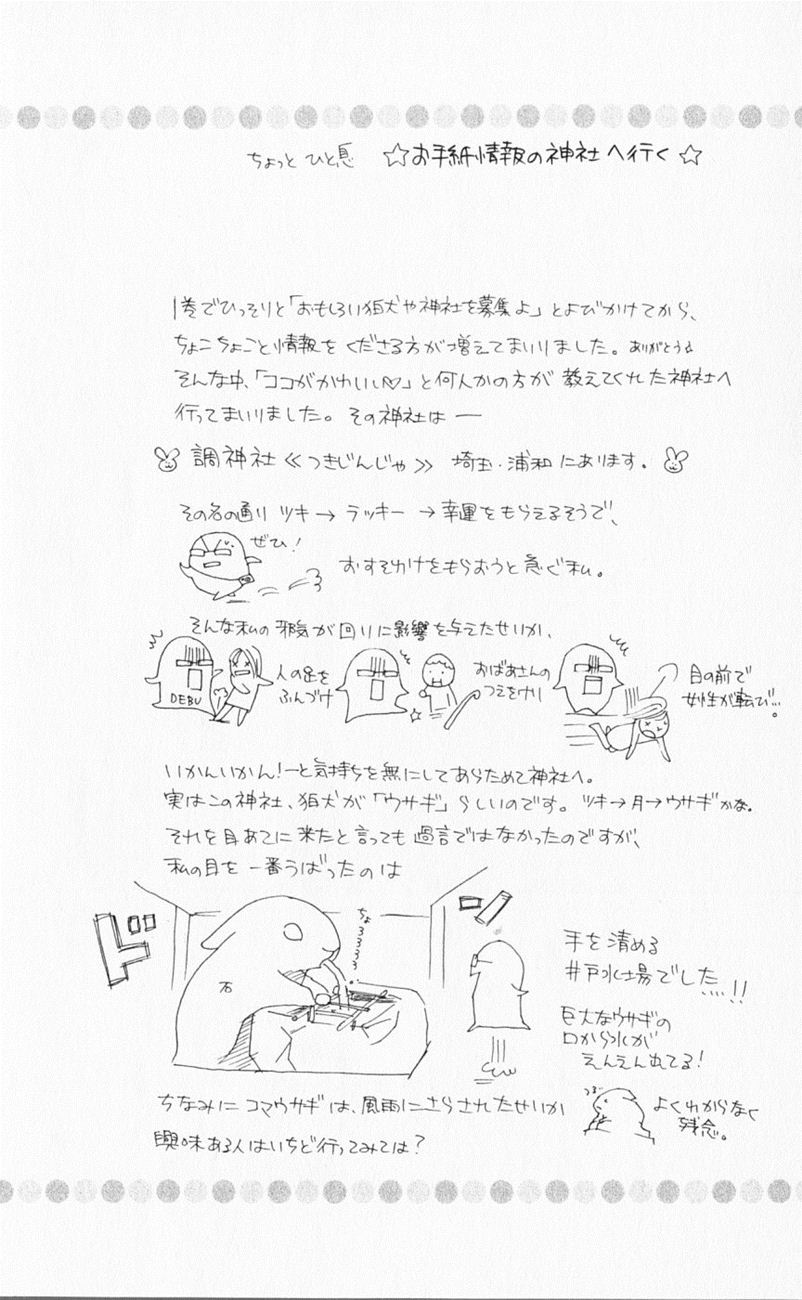 ちょっと ひと息 ☆お手紙情報の神社へ行く☆
1巻でひっそりと「おもしろい狛犬や神社を募集よ」とよびかけてから、
ちょこちょこと情報をくださる方が増えてまいりました。ありがとう☆
そんな中、「ココがかわいい♡」と何人かの方が教えてくれた神社へ
行ってまいりました。その神社は ―
調神社≪つきじんじゃ≫ 埼玉・浦和にあります。
その名の通り ツキ→ ラッキー →幸運をもらえるそうで、
ぜひ!
おすそわけをもらおうと急ぐ私。
そんな私の邪気が回りに影響を与えたせいか、
DEBU
人の足を
ふんづけ
おばあさんの
つえをけり
目の前で
女性が転び…。
いかんいかん!―と気持ちを無にしてあらためて神社へ。
実はこの神社、狛犬が「ウサギ」らしいのです。ツキ→月→ウサギかな。
それを目あてに来たと言っても過言ではなかったのですが、
私の目を一番うばったのは
ドーン
ちょろろろろ
石
手を清める
井戸水場でした…!!
巨大なウサギの
口から水が
えんえん出てる!
ちなみにコマウサギは、風雨にさらされたせいか
つる…
よくわからなく
残念。
興味ある人はいちど行ってみては?